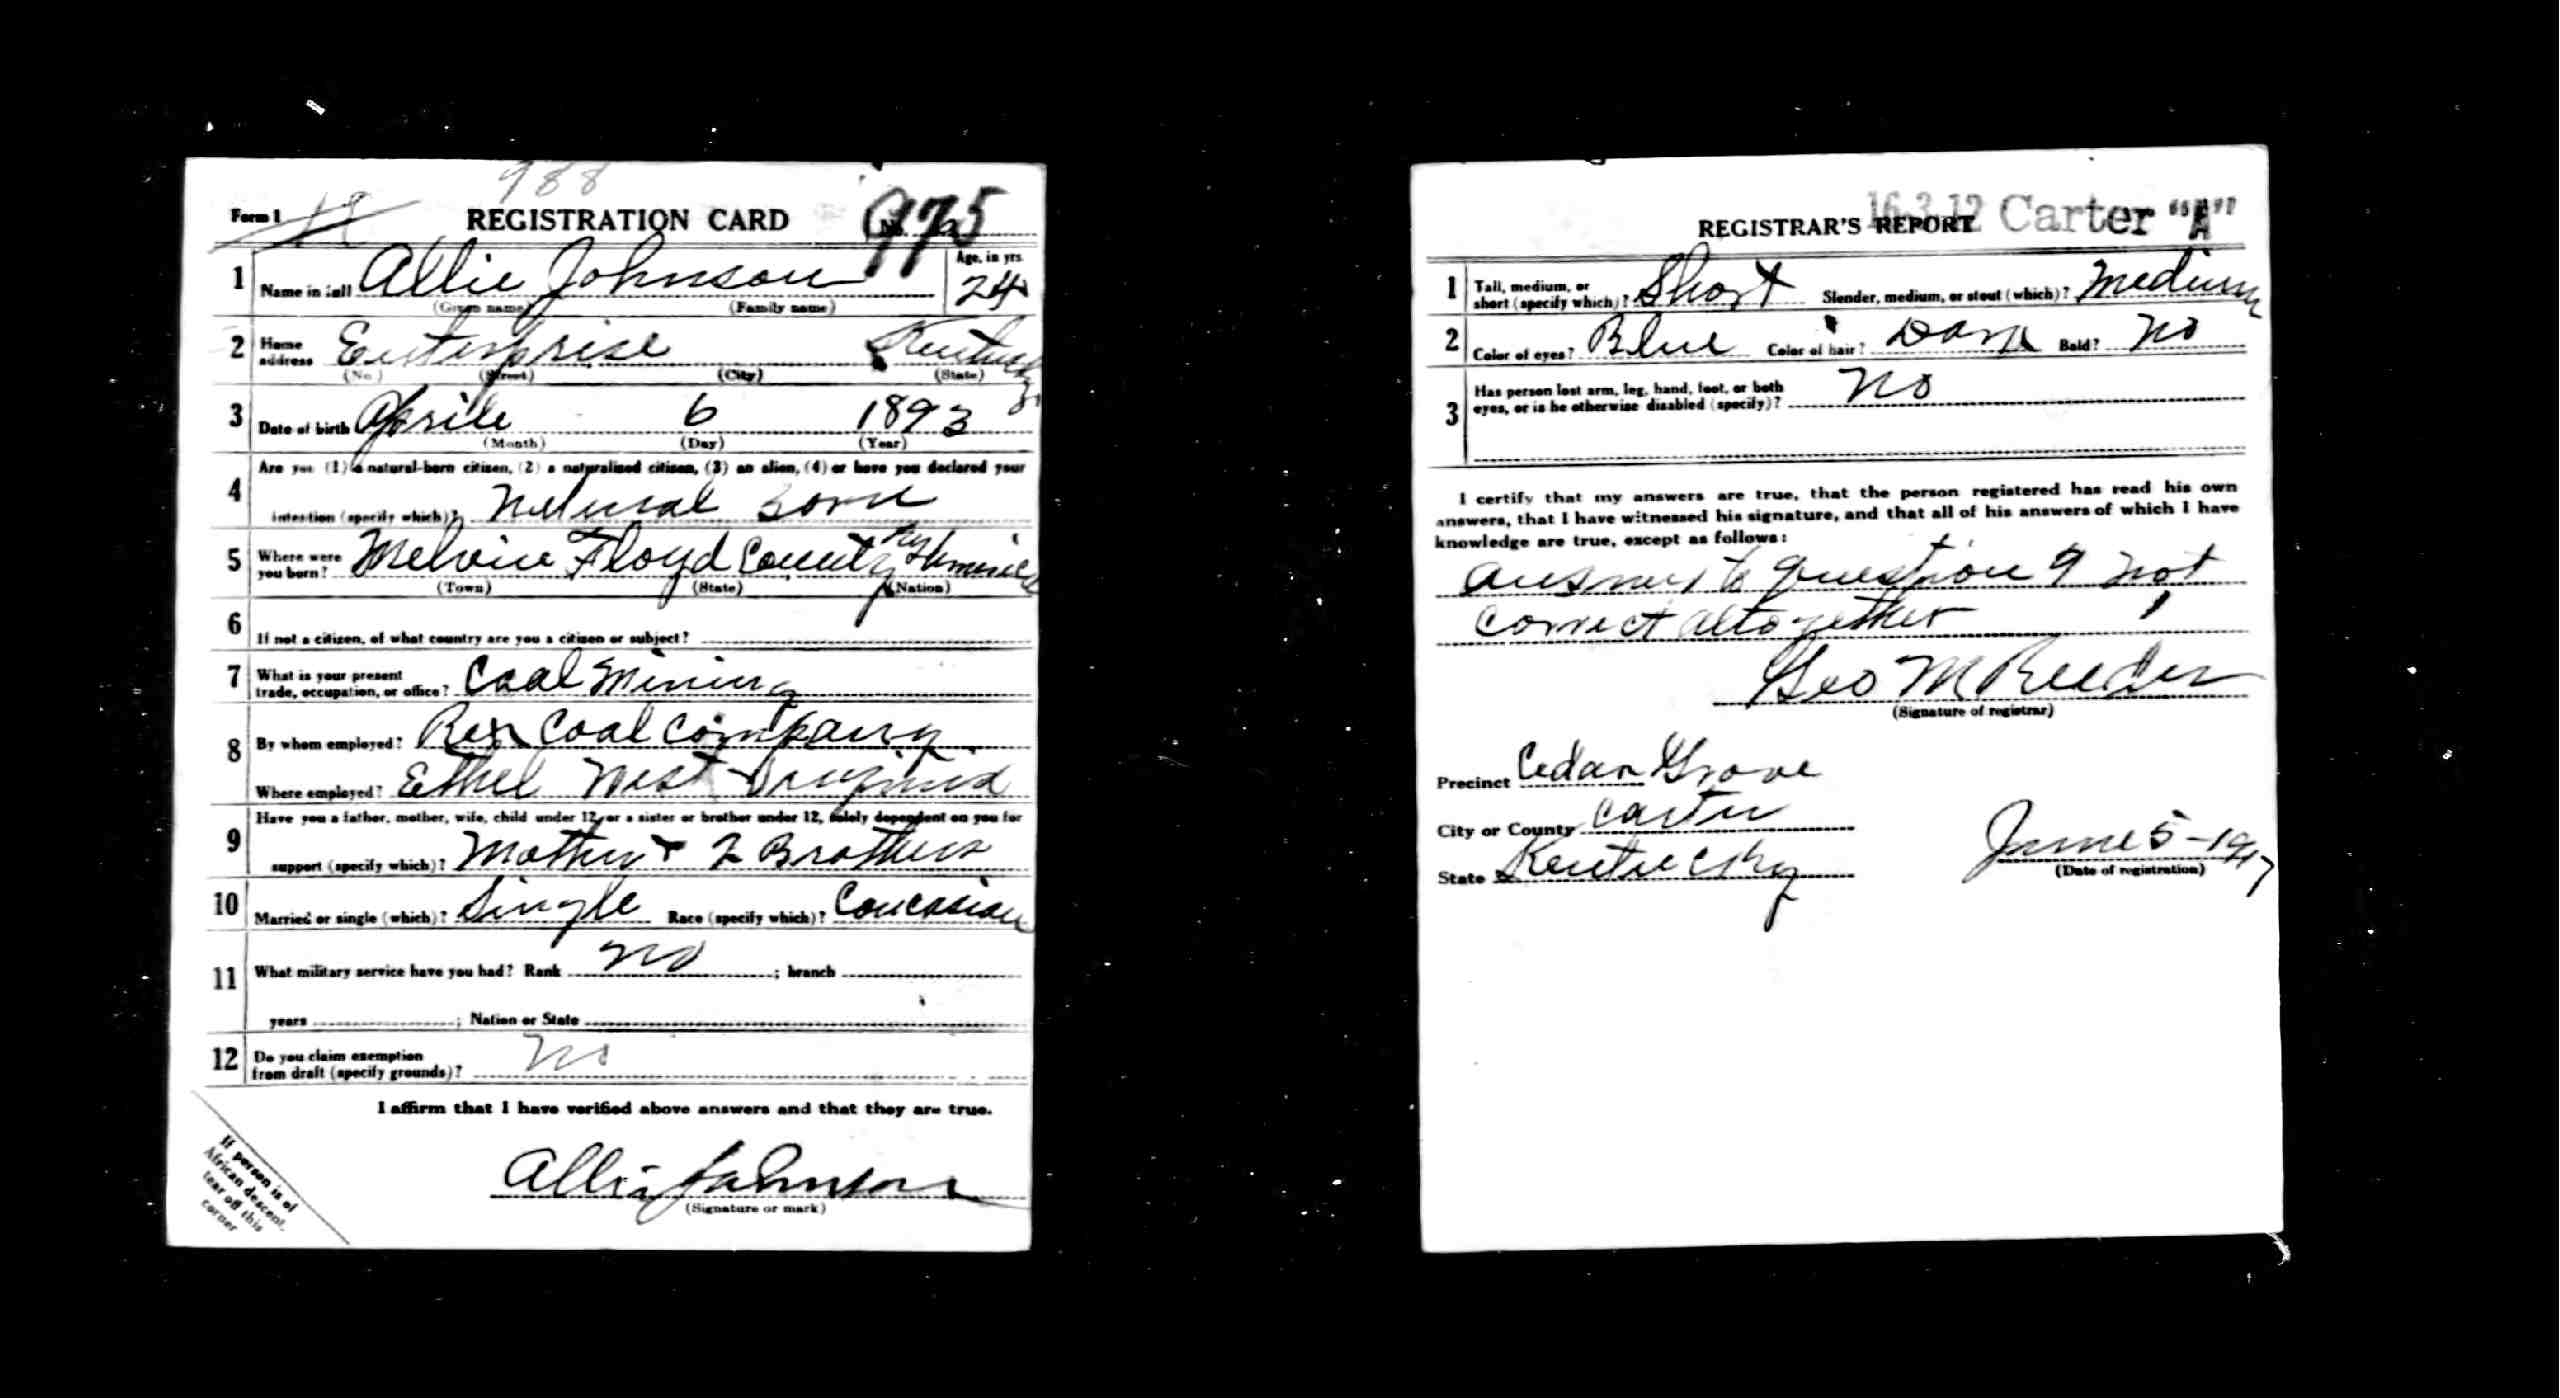 988
Form 1 REGISTRATION CARD No. 975
1 Name in full Allie Johnson Age, in yrs. 24
(Given name) (Family name)
2 Home address Enterprise Kentucky
(No.) (Street) (City) (State)
3 Date of birth Aprile 6 1893
(Month) (Day) (Year)
4 Are you (1) a natural-born citizen, (2) a naturalized citizen, (3) an alien, (4) or have you declared your
intention (specify which)? Netural Born
5 Where were you born? Melvin Floyd County Ky America
(Town) (State) (Nation)
6 If not a citizen, of what country are you a citizen or subject?
7 What is your present
trade, occupation, or office? Coal Mining
8 By whom employed? Rex Coal Company
Where employed? Ethel West Virginia
9 Have you a father, mother, wife, child under 12, or a sister or brother under 12, solely dependent on you for
support (specify which)? Mother + 2 Brothers
10 Married or single (which)? Single Race (specify which)? Concasian
11 What military service have you had? Rank no ; branch
years ; Nation or State
12 Do you claim exemption
from draft (specify grounds)? No
I affirm that I have verified above answers and that they are true.
Allie Johnson
(Signature or mark)
If person is of
African descent,
tear off this
corner
16-3-12 Carter "A"
REGISTRAR'S REPORT
1 Tall, medium, or
short (specify which)? Short Slender, medium, or stout (which)? Medium
2 Color of eyes? Blue Color of hair? Dark Bald? No
3 Has person lost arm, leg, hand, foot, or both
eyes, or is he otherwise disabled (specify)? No
I certify that my answers are true, that the person registered has read his own
answers, that I have witnessed his signature, and that all of his answers of which I have
knowledge are true, except as follows:
Answer to question 9 not
correct altogether
Geo M Reeder
(Signature of registrar)
Precinct Cedar Grove
City or County Carter
State Kentucky
June 5-1917
(Date of registration)